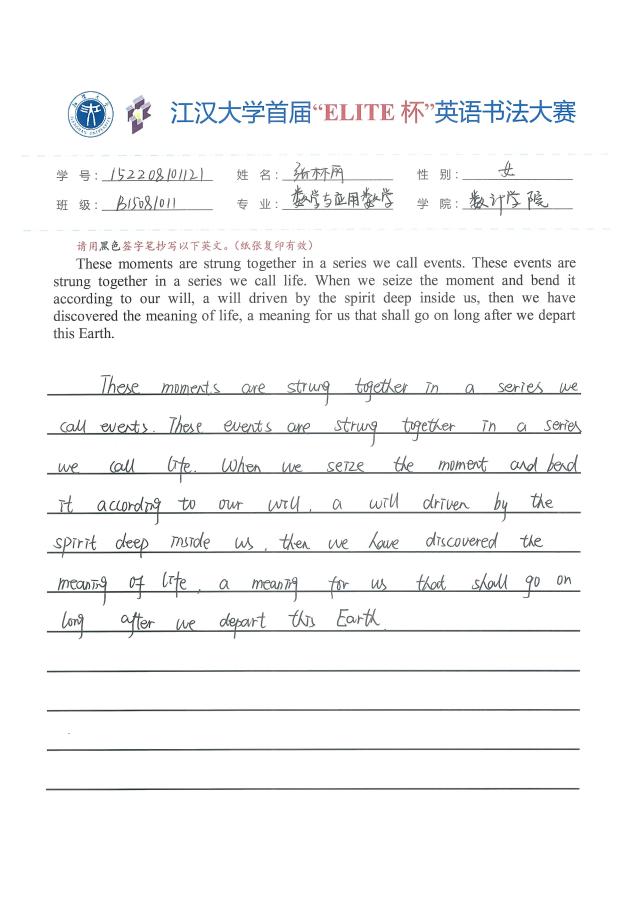 江汉大学首届“ELITE 杯”英语书法大赛
学 号：152208101121 姓 名：张林丽 性 别：女
班 级：B15081011 专 业：数学与应用数学 学 院：数计学院
请用黑色签字笔抄写以下英文。（纸张复印有效）
These moments are strung together in a series we call events. These events are
strung together in a series we call life. When we seize the moment and bend it
according to our will, a will driven by the spirit deep inside us, then we have
discovered the meaning of life, a meaning for us that shall go on long after we depart
this Earth.
These moments are strung together in a series we
call events. These events are strung together in a series
we call life. When we seize the moment and bend
it according to our will, a will driven by the
spirit deep inside us, then we have discovered the
meaning of life, a meaning for us that shall go on
long after we depart this Earth.